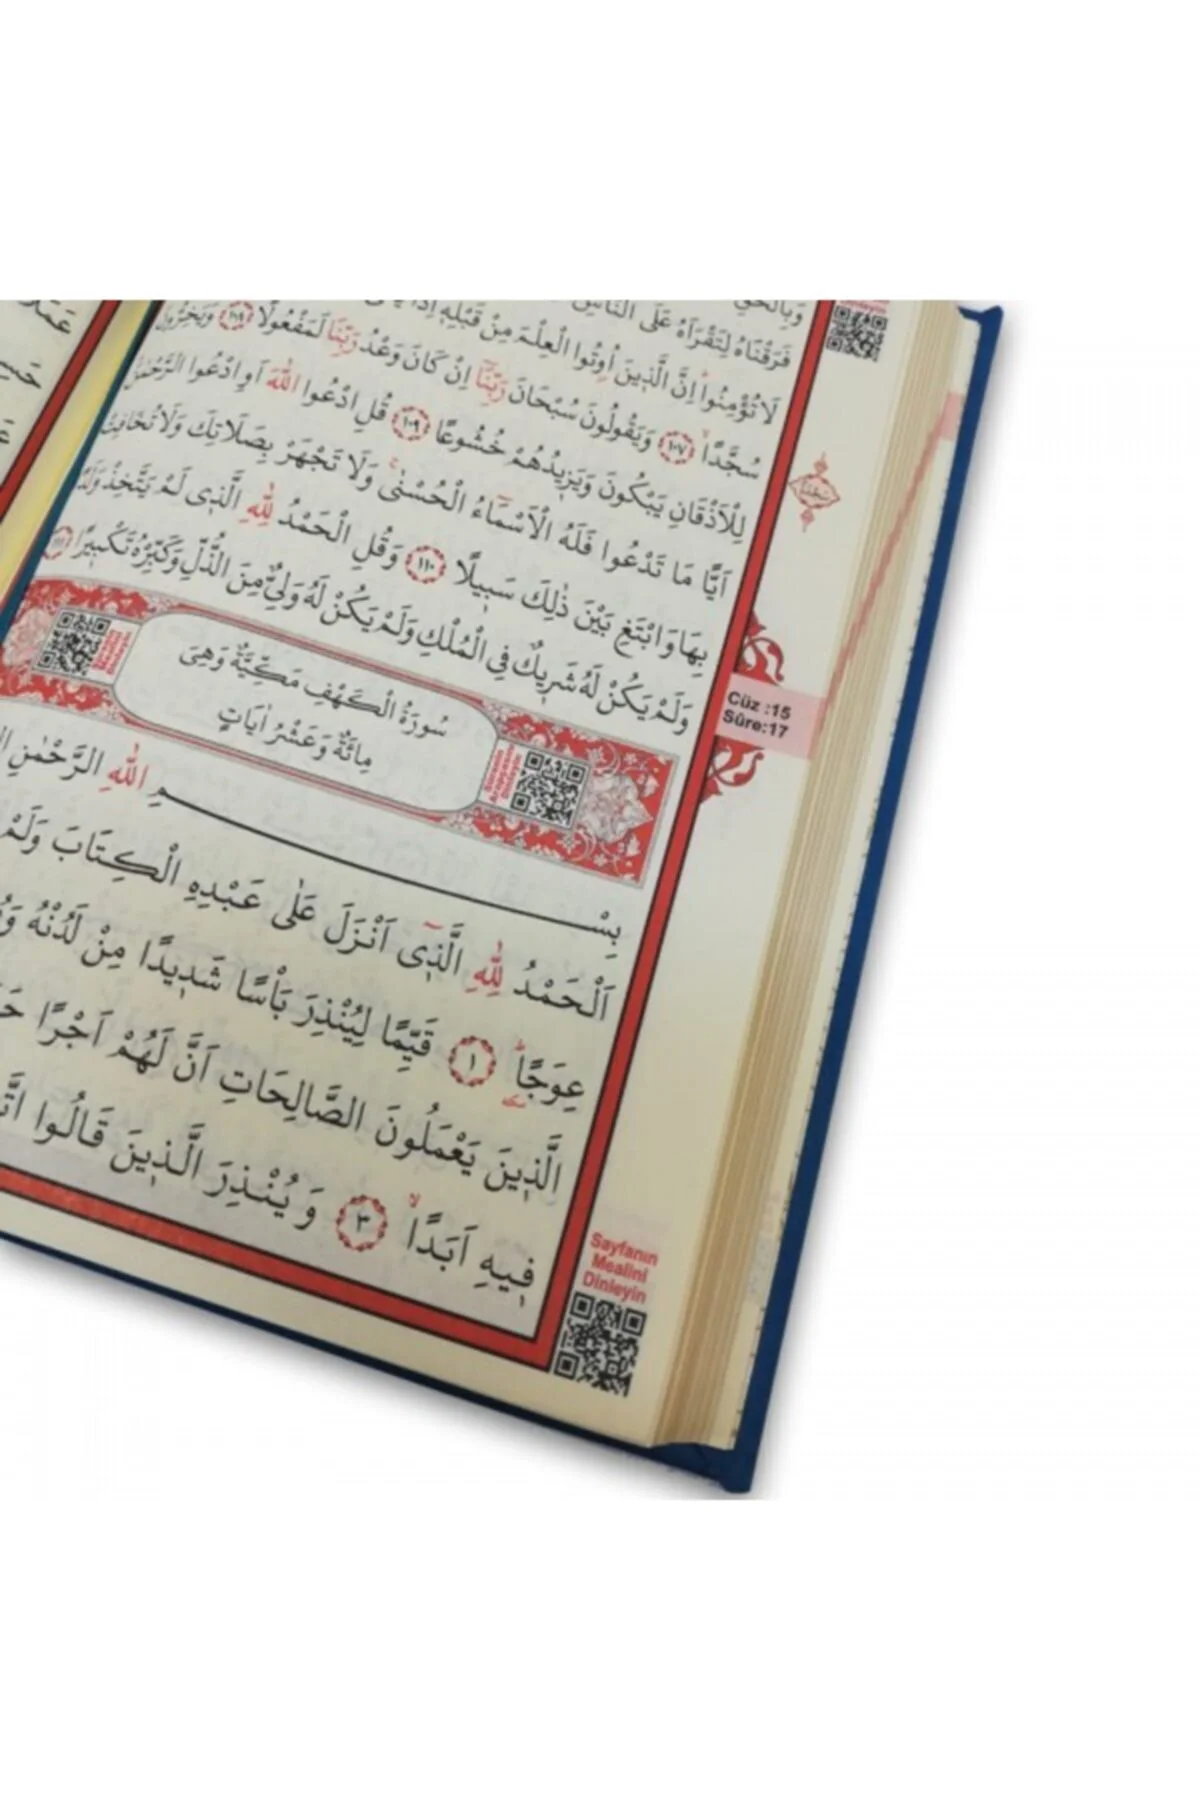 وَبِالْحَقِّ
فَرَقْنَاهُ لِتَقْرَاَهُ عَلَى النَّاسِ
لَا تُؤْمِنُوا اِنَّ الَّذ۪ينَ اُوتُوا الْعِلْمَ مِنْ قَبْلِه۪ٓ اِذَا
سُجَّدًا ١٠٧ وَيَقُولُونَ سُبْحَانَ رَبِّنَٓا اِنْ كَانَ وَعْدُ رَبِّنَا لَمَفْعُولًا ١٠٨ وَيَخِرُّونَ
لِلْاَذْقَانِ يَبْكُونَ وَيَز۪يدُهُمْ خُشُوعًا ١٠٩ قُلِ ادْعُوا اللّٰهَ اَوِ ادْعُوا الرَّحْمٰنَ
اَيًّا مَا تَدْعُوا فَلَهُ الْاَسْمَٓاءُ الْحُسْنٰى وَلَا تَجْهَرْ بِصَلَاتِكَ وَلَا تُخَافِتْ
بِهَا وَابْتَغِ بَيْنَ ذٰلِكَ سَب۪يلًا ١١٠ وَقُلِ الْحَمْدُ لِلّٰهِ الَّذ۪ى لَمْ يَتَّخِذْ وَلَدًا
وَلَمْ يَكُنْ لَهُ شَر۪يكٌ فِى الْمُلْكِ وَلَمْ يَكُنْ لَهُ وَلِىٌّ مِنَ الذُّلِّ وَكَبِّرْهُ تَكْب۪يرًا ١١١
Cüz :15
Sûre:17
سُورَةُ الْكَهْفِ مَكِّيَّةٌ وَهِىَ
مِائَةٌ وَعَشْرُ اٰيَاتٍ
بِسْــــمِ اللّٰهِ الرَّحْمٰنِ
اَلْحَمْدُ لِلّٰهِ الَّذ۪ٓى اَنْزَلَ عَلٰى عَبْدِهِ الْكِتَابَ وَلَمْ
عِوَجًا ١ قَيِّمًا لِيُنْذِرَ بَأْسًا شَد۪يدًا مِنْ لَدُنْهُ
الَّذ۪ينَ يَعْمَلُونَ الصَّالِحَاتِ اَنَّ لَهُمْ اَجْرًا
ف۪يهِ اَبَدًا ٣ وَيُنْذِرَ الَّذ۪ينَ قَالُوا
Sayfanın
Mealini
Dinleyin